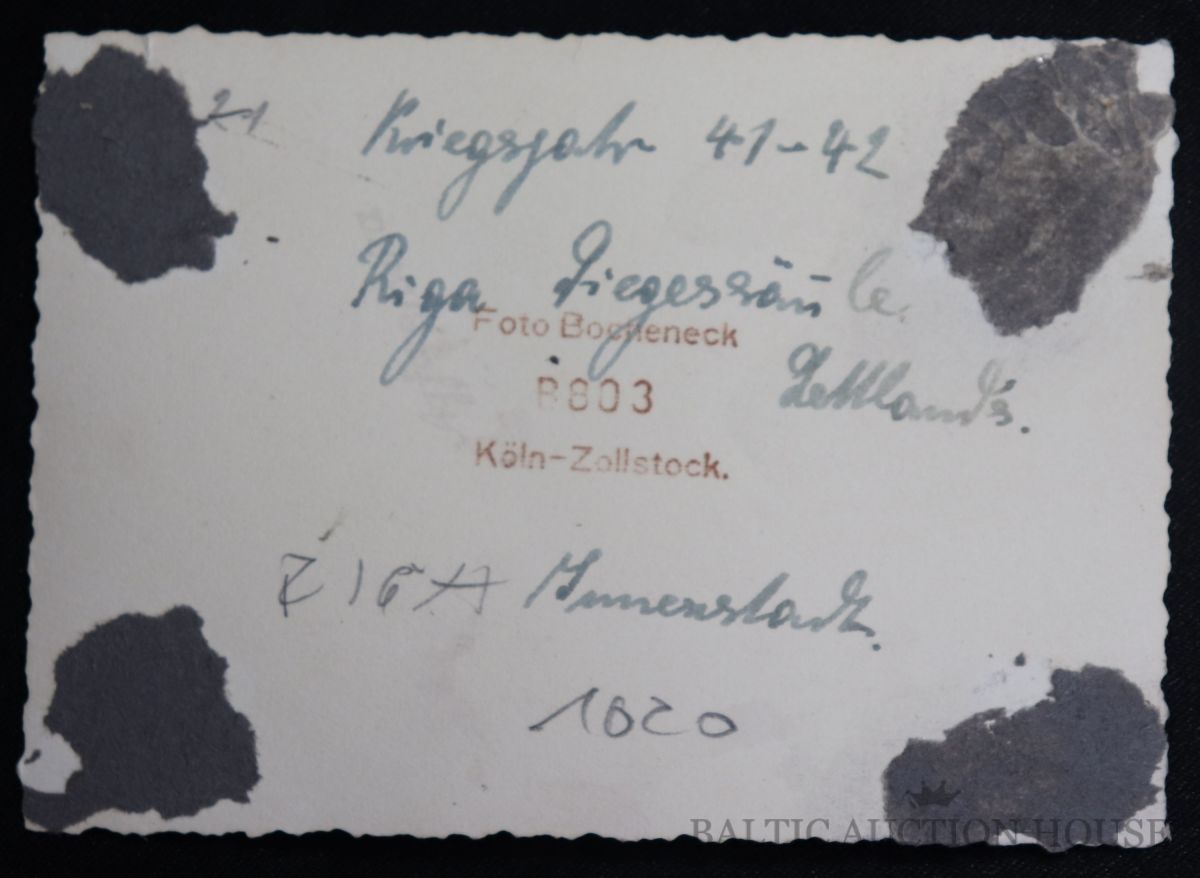 21
Kriegsjahr 41-42
Riga Siegessäule
Foto Bocheneck
B803
Lettlands.
Köln-Zollstock.
Innenstadt.
1020
BALTIC AUCTION HOUSE